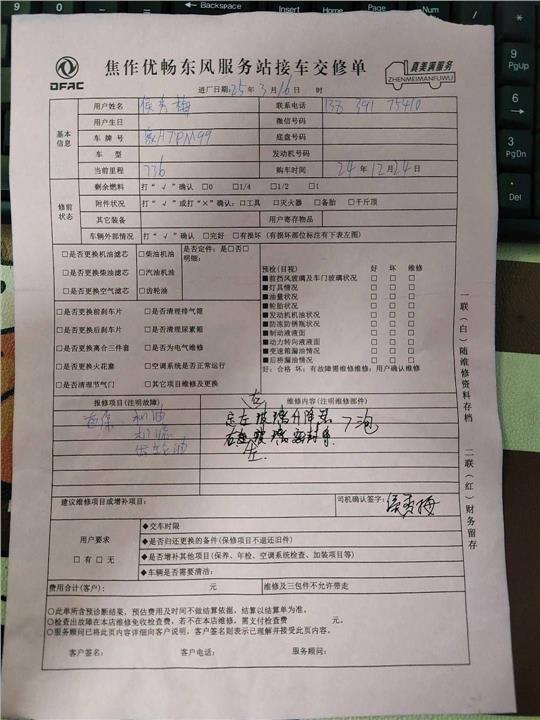 DFAC
焦作优畅东风服务站接车交修单
真美满服务
ZHENMEIMANFUWU
进厂日期:25年3月16日 时
基本信息
用户姓名 侯秀梅 联系电话
用户生日 微信号码
车牌号 底盘号码
车型 发动机号码
当前里程 736 购车时间 24年12月24日
修前状态
剩余燃料 打“√”确认 □0 □1/4 □1/2 □1
附件状况 打“√”或打“×”确认:□工具 □灭火器 □备胎 □千斤顶
其它装备 用户寄存物品
车辆外部情况 打“√”确认 □完好 □有损坏(有损部位标注有下表左图)
□是否更换机油滤芯 □柴油机油 是否定件:是□否□
明细:
□是否更换柴油滤芯 □汽油机油
□是否更换空气滤芯 □齿轮油
□是否更换前刹车片 □是否清理排气筒
□是否更换后刹车片 □是否清理尿素箱
□是否更换离合三件套 □是否为电气维修
□是否更换火花塞 □空调系统是否正常运行
□是否清理节气门 □其它项目维修及更换
预检(目视) 好 坏 维修
■前挡风玻璃及车门玻璃状况 □ □ □
■灯具情况 □ □ □
■油量状况 □ □ □
■轮胎状况 □ □ □
■发动机机油状况 □ □ □
■防冻防锈瓶状况 □ □ □
■制动液液面 □ □ □
■动力转向液液面 □ □ □
■变速箱漏油情况 □ □ □
■后桥漏油情况 □ □ □
好:合格 坏:有故障需维修维修:用户确认维修
报修项目(注明故障) 维修内容(注明维修部件)
首保 机油
机滤
左
玻璃升降器
玻璃密封条
左
建议维修项目或增补项目: 司机确认签字:侯秀梅
用户要求
□有□无
◆交车时限
◆是否归还更换的备件(保修项目不退还旧件)
◆是否增补其他项目(保养、年检、空调系统检查、加装项目等)
◆车辆是否需要清洁:
费用合计(客户): 元 维修及三包件不允许带走
○此单所含预诊断结果、预估费用及时间不做结算依据,结算以结算单为准。
○检查出故障在本店维修免收检查费,若不在本店维修,需支付检查费 元。
○服务顾问已将此页内容详细向客户说明,客户签名则表示已理解并接受此页内容。
客户签名: 客户电话: 服务顾问:
一联(白)随维修资料存档
二联(红)财务留存
9
PgUp
6
3
PgDn
.
Del